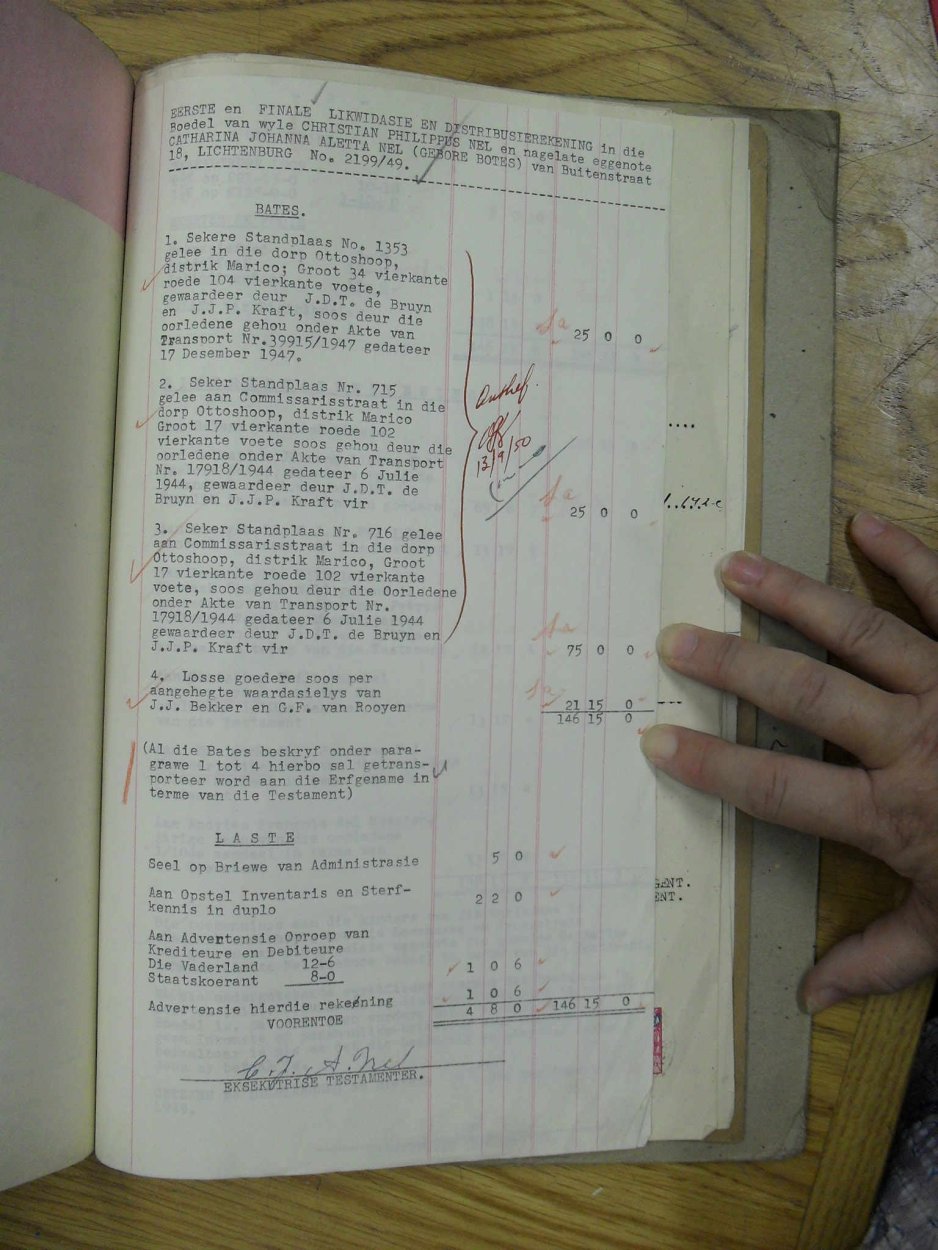 EERSTE en FINALE LIKWIDASIE EN DISTRIBUSIEREKENING in die
Boedel van wyle CHRISTIAN PHILIPPUS NEL en nagelate eggenote
CATHARINA JOHANNA ALETTA NEL (GEBORE BOTES) van Buitenstraat
18, LICHTENBURG No. 2199/49.
BATES.
1. Sekere Standplaas No. 1353
gelee in die dorp Ottoshoop,
distrik Marico; Groot 34 vierkante
roede 104 vierkante voete,
gewaardeer deur J.D.T. de Bruyn
en J.J.P. Kraft, soos deur die
oorledene gehou onder Akte van
Transport Nr.39915/1947 gedateer
17 Desember 1947.
25 0 0
2. Seker Standplaas Nr. 715
gelee aan Commissarisstraat in die
dorp Ottoshoop, distrik Marico
Groot 17 vierkante roede 102
vierkante voete soos gehou deur die
oorledene onder Akte van Transport
Nr. 17918/1944 gedateer 6 Julie
1944, gewaardeer deur J.D.T. de
Bruyn en J.J.P. Kraft vir
25 0 0
13/9/50
3. Seker Standplaas Nr. 716 gelee
aan Commissarisstraat in die dorp
Ottoshoop, distrik Marico, Groot
17 vierkante roede 102 vierkante
voete, soos gehou deur die Oorledene
onder Akte van Transport Nr.
17918/1944 gedateer 6 Julie 1944
gewaardeer deur J.D.T. de Bruyn en
J.J.P. Kraft vir 75 0 0
4. Losse goedere soos per
aangehegte waardasielys van
J.J. Bekker en G.F. van Rooyen 21 15 0
146 15 0
(Al die Bates beskryf onder para-
grawe 1 tot 4 hierbo sal getrans-
porteer word aan die Erfgename in
terme van die Testament)
L A S T E
Seel op Briewe van Administrasie 5 0
Aan Opstel Inventaris en Sterf-
kennis in duplo 2 2 0
Aan Advertensie Oproep van
Krediteure en Debiteure
Die Vaderland 12-6
Staatskoerant 8-0 1 0 6
Advertensie hierdie rekening 1 0 6
VOORENTOE 4 8 0 146 15 0
C. J. A. Nel
EKSEKUTRISE TESTAMENTER.
GENT.
ENT.